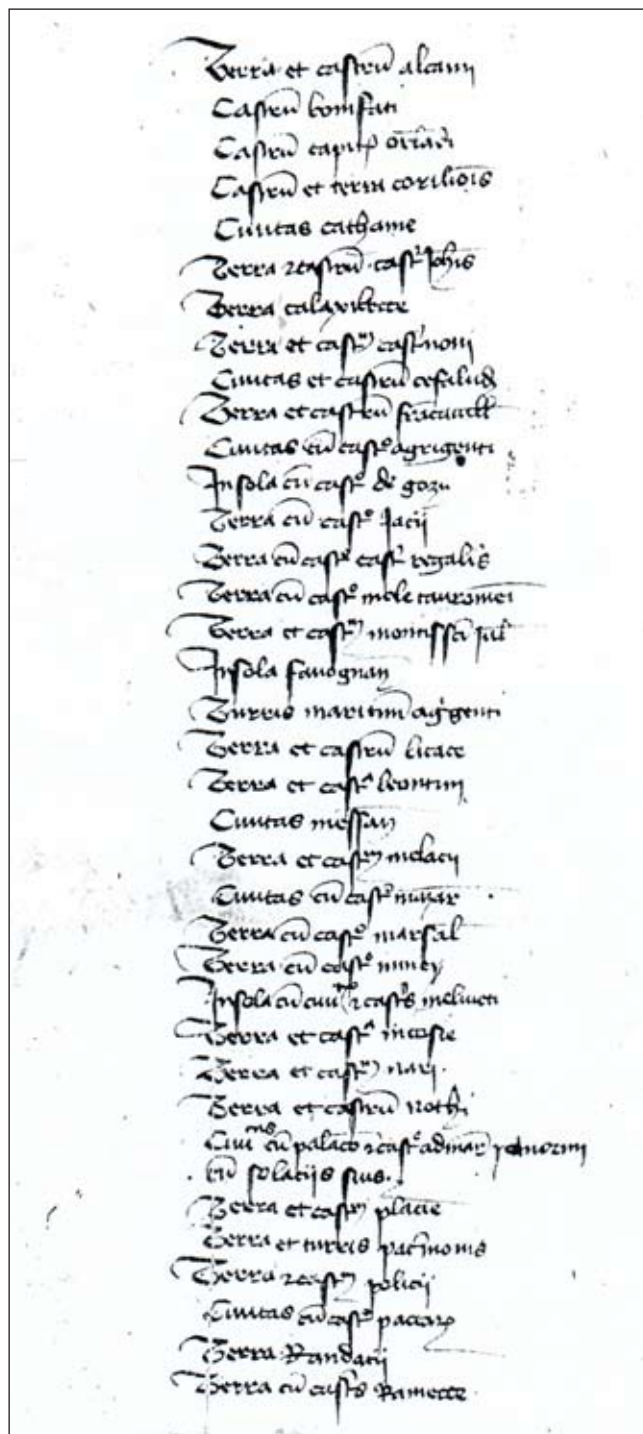 Terra et castrũ alcami
Castrũ bonifati
Castrũ capit orlãdi
Castrũ et terra corilioĩs
Civitas cathanie
Terra ⁊ castrũ castⁱ Joħis
Terra calaxibecte
Terra et castᵐ castⁱ novi
Civitas et castrũ cefalud
Terra et castrũ frãcavill
Civitas cũ castº agrigenti
Insola cũ castº de gozu
Terra cũ castº Jacii
Terra cũ castº castⁱ regalis
Terra cũ castº mole tauromeĩ
Terra et castᵐ montis sc̃i Jul
Insola favognan
Turris maritim agⁱgenti
Terra et castrũ licace
Terra et castᵃ leontini
Civitas messañ
Terra et castᵐ melacii
Civitas cũ castº mazar
Terra cũ castº marsal
Terra cũ castº miney
Insola cũ civi ⁊ castⁱs meliveti
Terra et castᵃ nicosie
Terra et castᵐ nari
Terra et castrũ nothi
Civitas cũ palac̃o ⁊ castº admar̃ panormi
cũ solaciis suis
Terra et castᵐ placie
Terra et turris pac̃monis
Terra ⁊ castᵐ policii
Civitas cũ castº pactar
Terra Randacii
Terra cũ castⁱs Ramecte